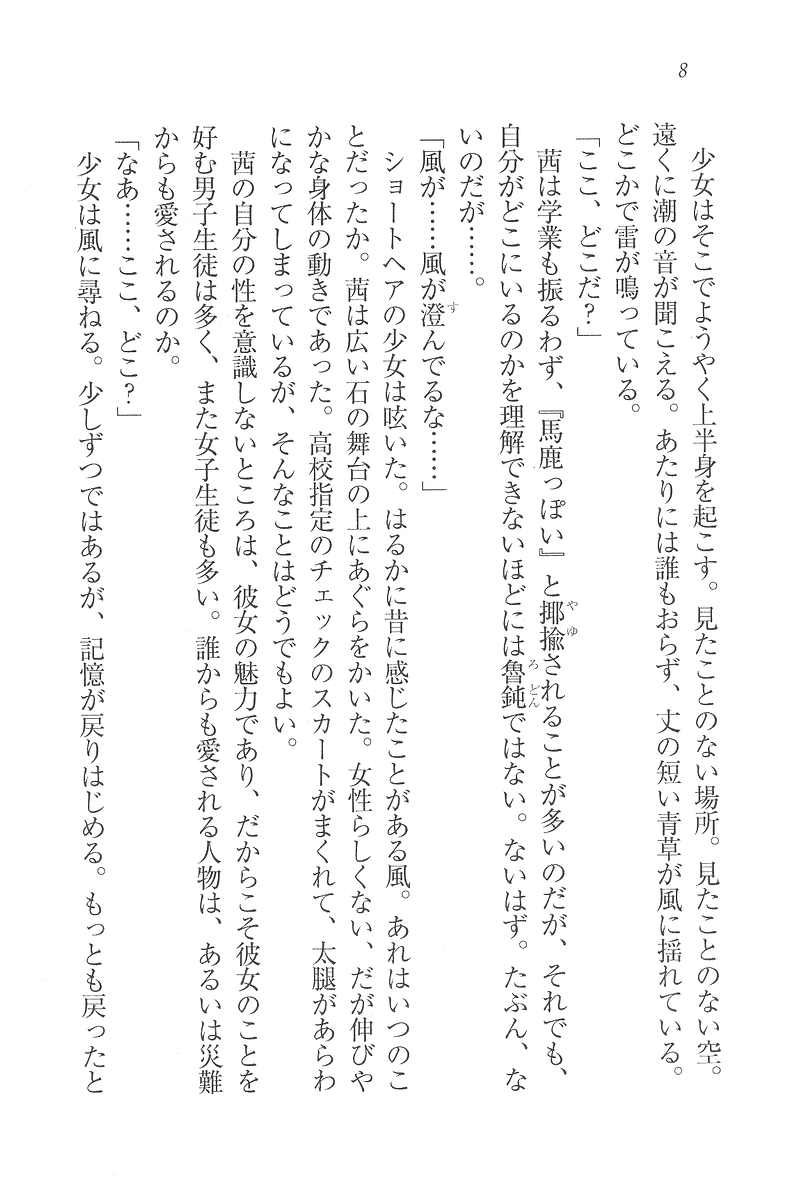 8
少女はそこでようやく上半身を起こす。見たことのない場所。見たことのない空。
遠くに潮の音が聞こえる。あたりには誰もおらず、丈の短い青草が風に揺れている。
どこかで雷が鳴っている。
「ここ、どこだ？」
茜は学業も振るわず、『馬鹿っぽい』と揶揄されることが多いのだが、それでも、
自分がどこにいるのかを理解できないほどには魯鈍ではない。ないはず。たぶん、な
いのだが……。
「風が……風が澄んでるな……」
ショートヘアの少女は呟いた。はるかに昔に感じたことがある風。あれはいつのこ
とだったか。茜は広い石の舞台の上にあぐらをかいた。女性らしくない、だが伸びや
かな身体の動きであった。高校指定のチェックのスカートがまくれて、太腿があらわ
になってしまっているが、そんなことはどうでもよい。
茜の自分の性を意識しないところは、彼女の魅力であり、だからこそ彼女のことを
好む男子生徒は多く、また女子生徒も多い。誰からも愛される人物は、あるいは災難
からも愛されるのか。
「なあ……ここ、どこ？」
少女は風に尋ねる。少しずつではあるが、記憶が戻りはじめる。もっとも戻ったと